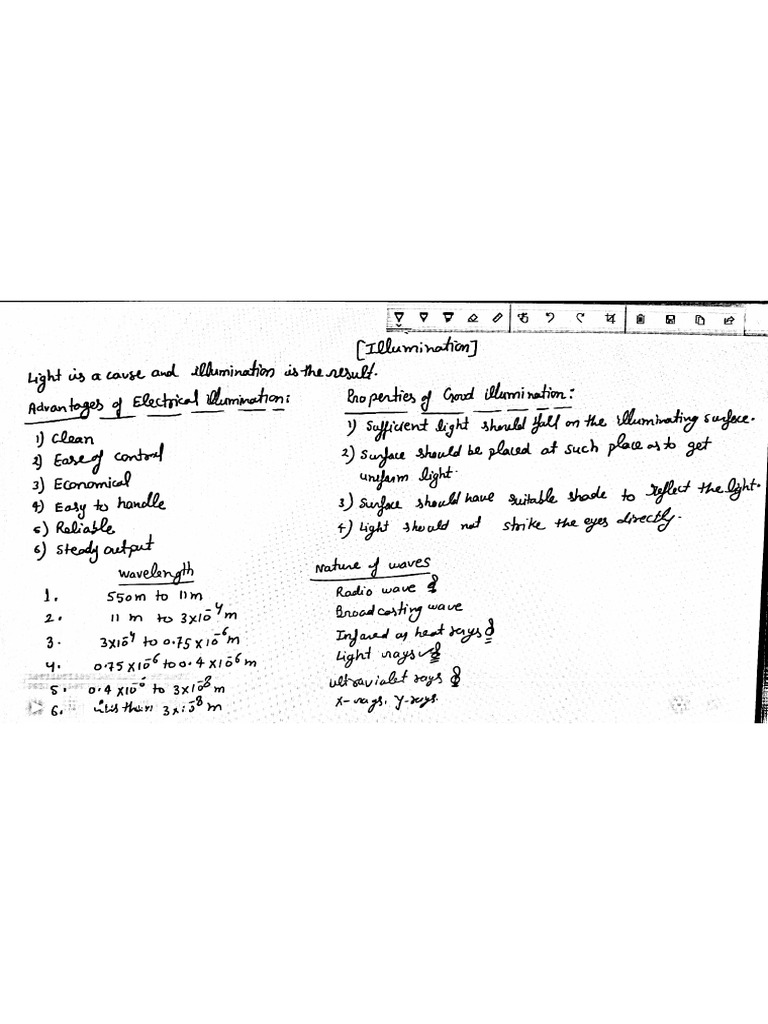 [Illumination]
Light is a cause and illumination is the result.
Advantages of Electrical illumination:
1) Clean
2) Ease of control
3) Economical
4) Easy to handle
5) Reliable
6) Steady output
Properties of Good illumination:
1) Sufficient light should fall on the illuminating surface.
2) Surface should be placed at such place as to get
uniform light.
3) Surface should have suitable shade to reflect the light.
4) Light should not strike the eyes directly.
Wavelength Nature of waves
1. 550m to 11m Radio wave
2. 11 m to 3x10⁻⁴ m Broadcasting wave
3. 3x10⁻⁴ to 0.75x10⁻⁶m Infared as heat rays
4. 0.75x10⁻⁶ to 0.4x10⁻⁶m Light rays
5. 0.4x10⁻⁶ to 3x10⁻⁸m ultraviolet rays
6. than 3x10⁻⁸m X-rays, Y-rays.